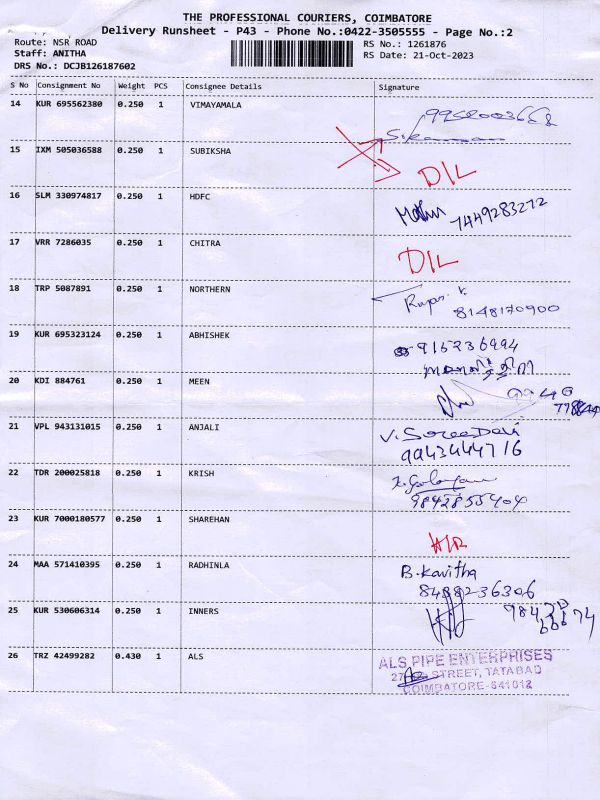 THE PROFESSIONAL COURIERS, COIMBATORE
Delivery Runsheet - P43 - Phone No.:0422-3505555 - Page No.:2
Route: NSR ROAD
Staff: ANITHA
DRS No.: DCJB126187602
RS No.: 1261876
RS Date: 21-Oct-2023
S No Consignment No Weight PCS Consignee Details Signature
14 KUR 695562380 0.250 1 VIMAYAMALA
15 IXM 505036588 0.250 1 SUBIKSHA D/L
16 SLM 330974817 0.250 1 HDFC
7449283272
17 VRR 7286035 0.250 1 CHITRA D/L
18 TRP 5087891 0.250 1 NORTHERN
8148170900
19 KUR 695323124 0.250 1 ABHISHEK 9165236994
20 KDI 884761 0.250 1 MEEN
21 VPL 943131015 0.250 1 ANJALI V. Soree Devi
9943444716
22 TDR 200025818 0.250 1 KRISH
9842855404
23 KUR 7000180577 0.250 1 SHAREHAN
24 MAA 571410395 0.250 1 RADHINLA B. Kavitha
8488236306
25 KUR 530606314 0.250 1 INNERS
26 TRZ 42499282 0.430 1 ALS ALS PIPE ENTERPRISES
STREET, TATABAD
COIMBATORE-641012